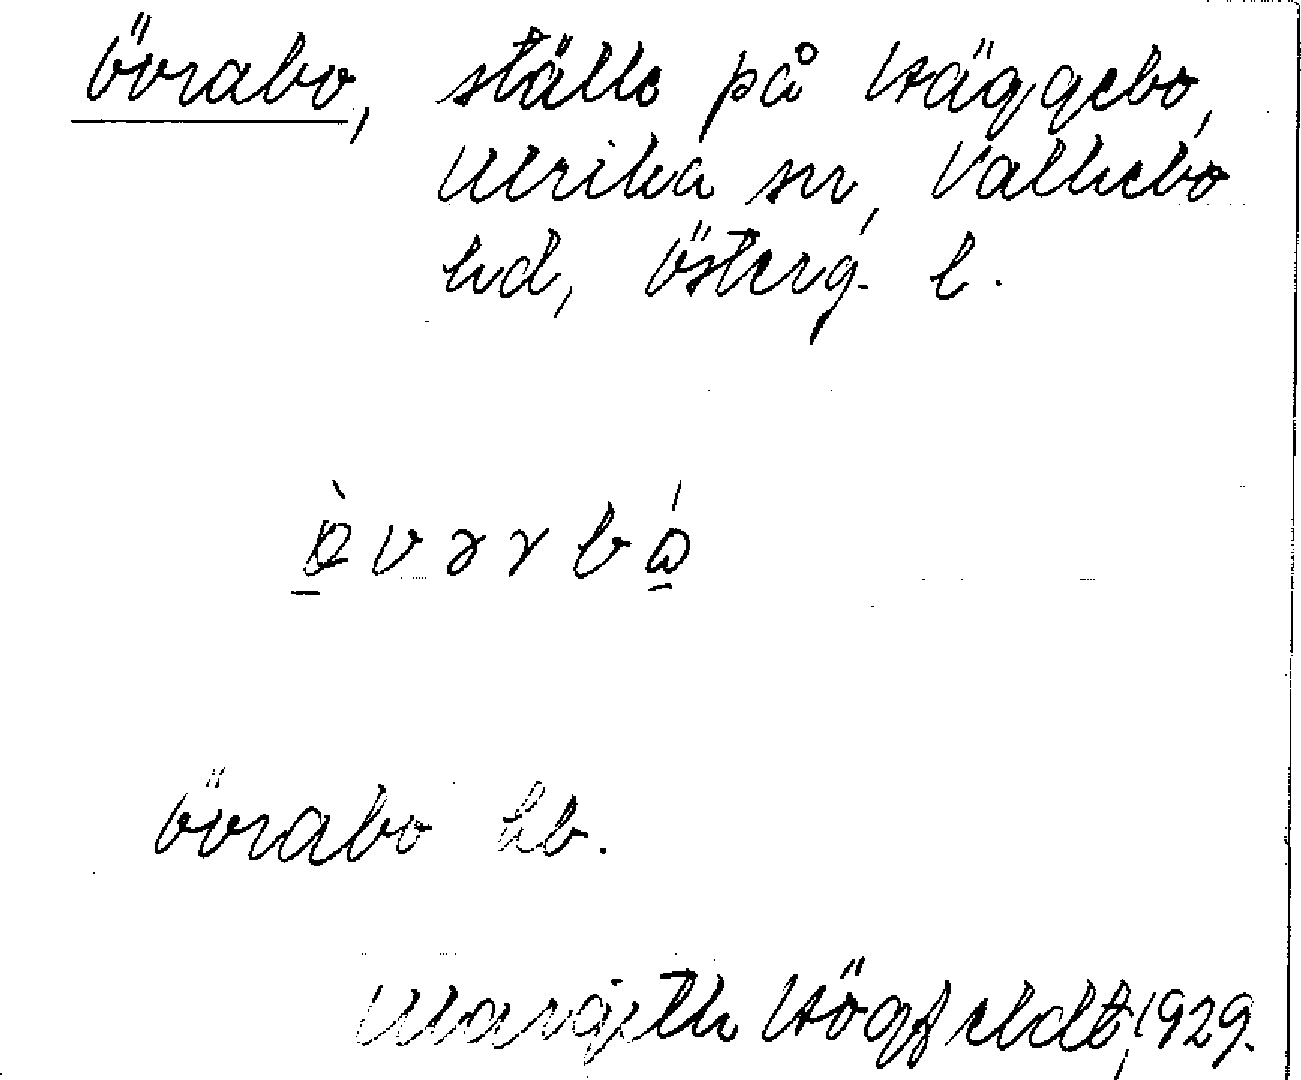 Övrabo, ställe på Häggebo,
Ulrika sn, Valkebo
hd, Österg. l.
Övrabo hb.
Margit Högfeldt, 1929.